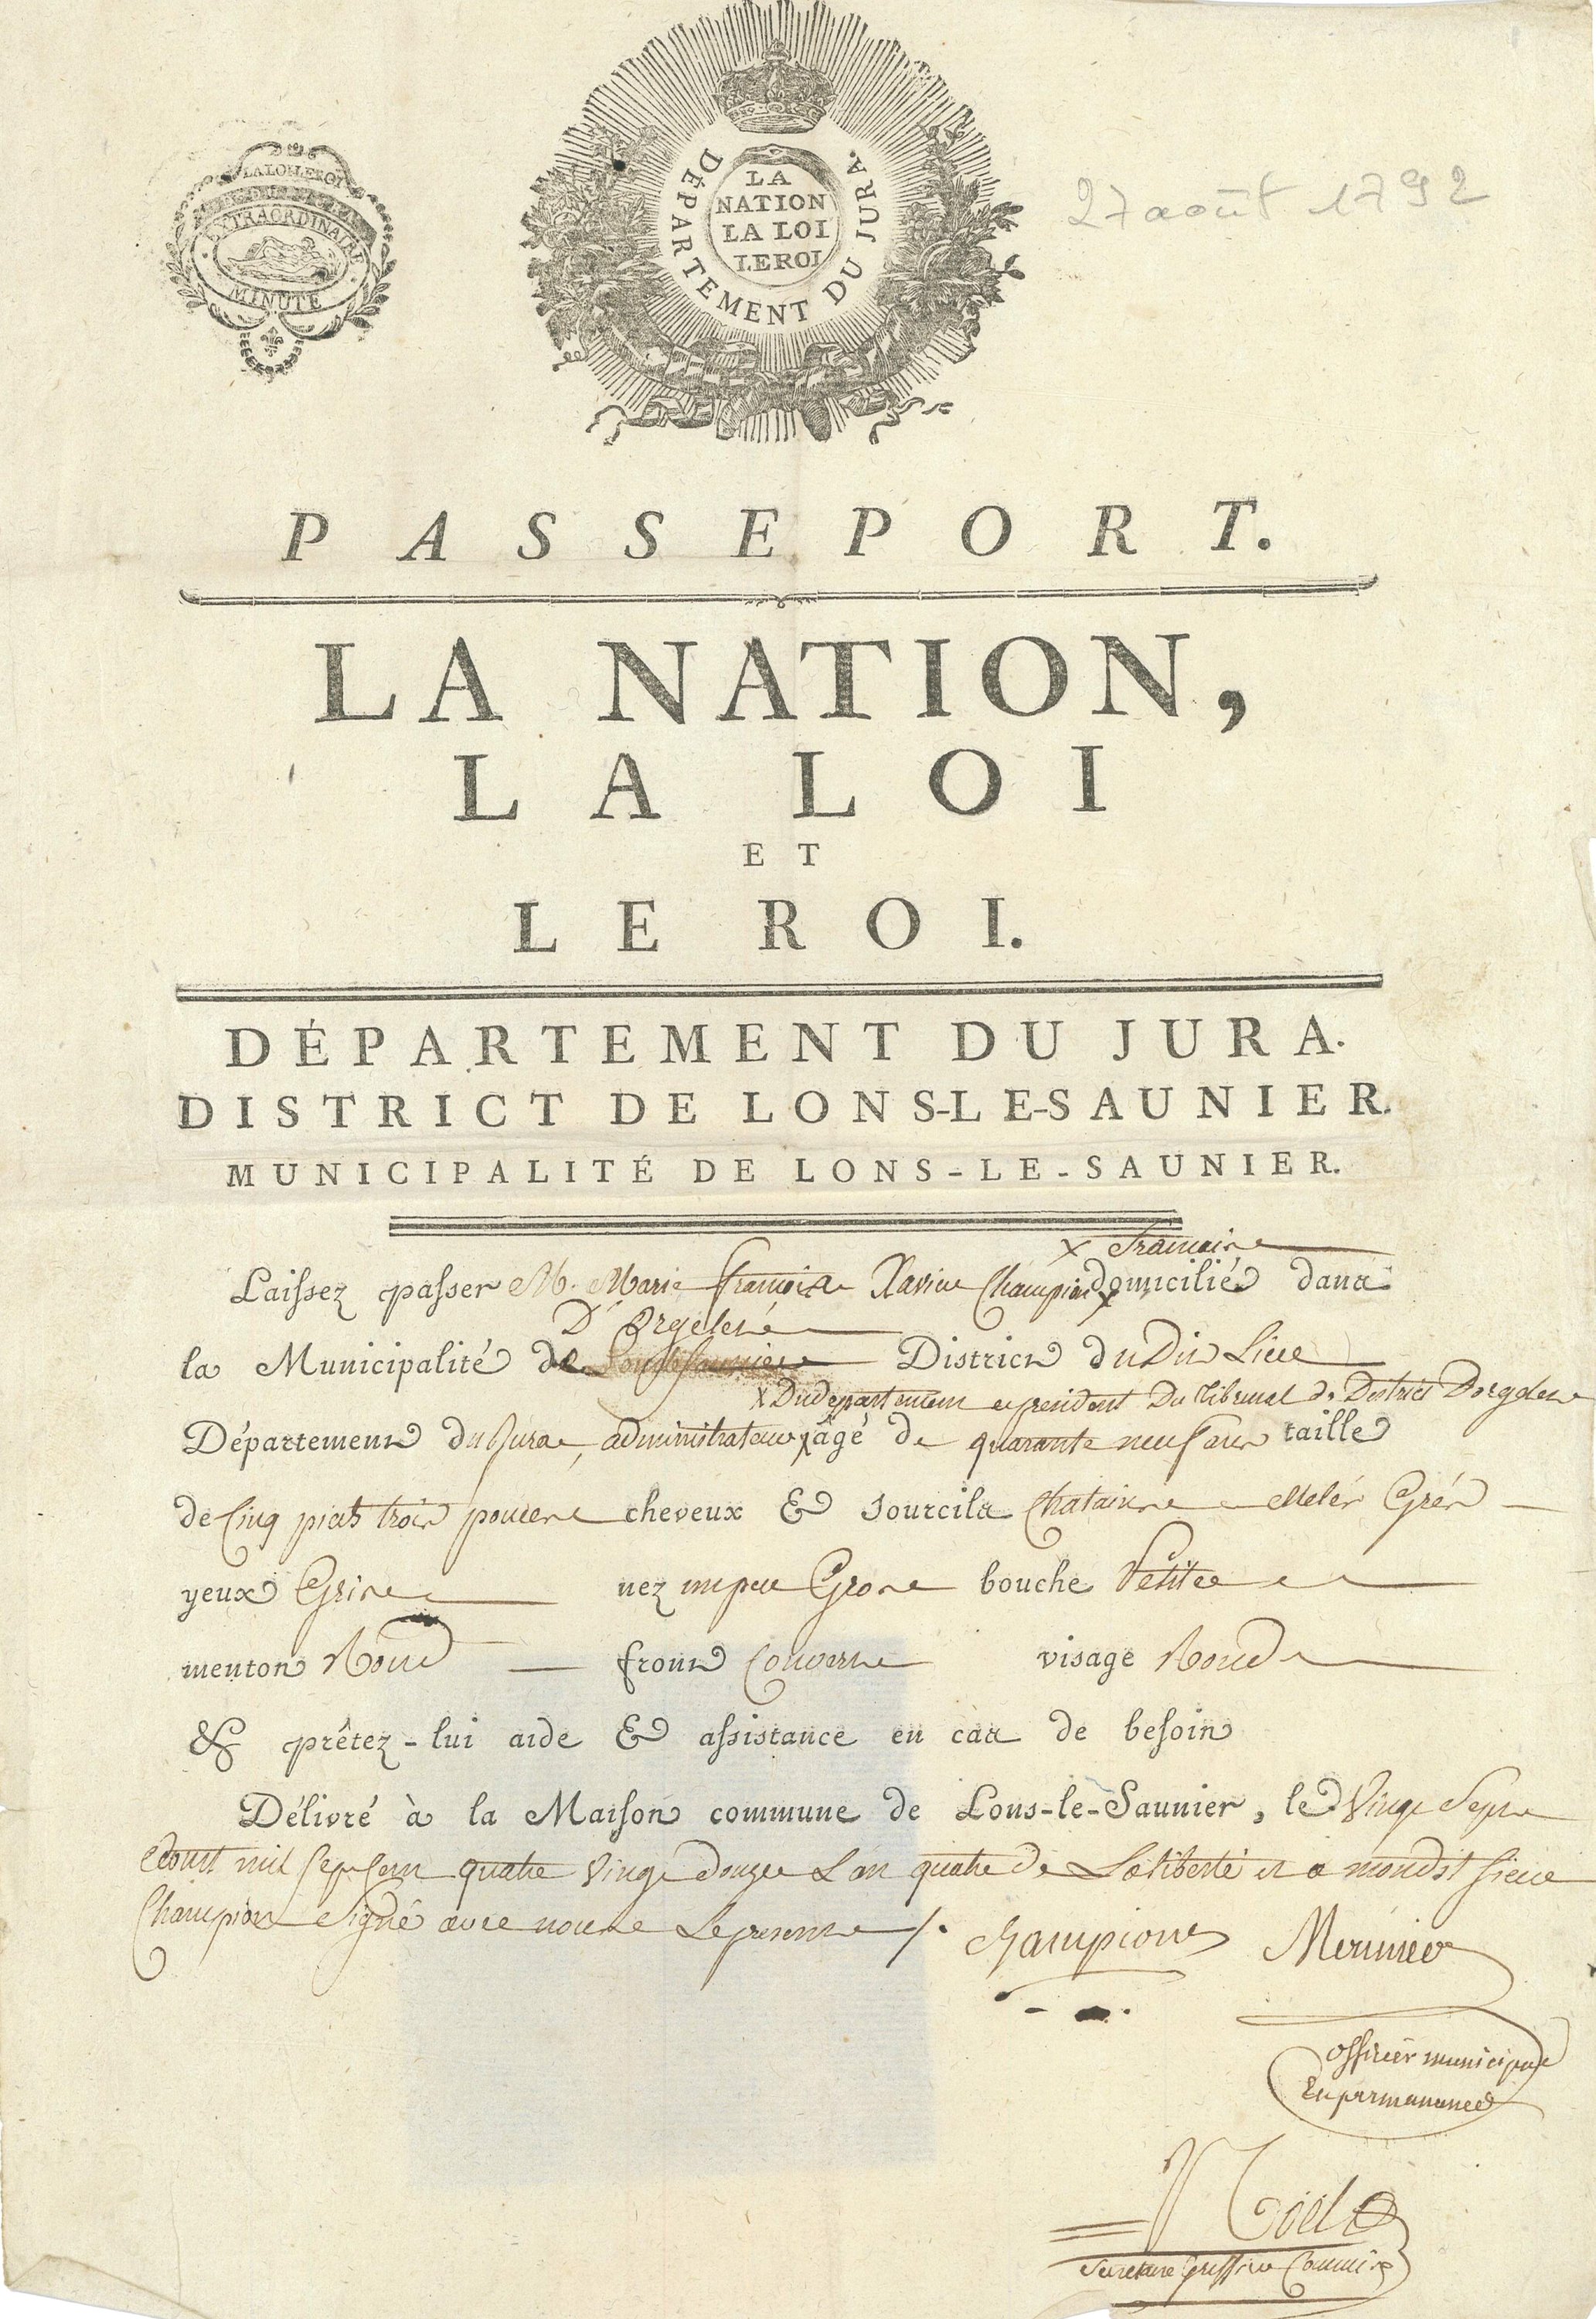 LA LOI LE ROI
EXTRAORDINAIRE
MINUTE
DÉPARTEMENT DU JURA.
LA
NATION
LA LOI
LE ROI
27 août 1792
PASSEPORT.
LA NATION,
LA LOI
ET
LE ROI.
DÉPARTEMENT DU JURA.
DISTRICT DE LONS-LE-SAUNIER.
MUNICIPALITÉ DE LONS-LE-SAUNIER.
x francois
Laissez passer M. Marie francois Xavier Champion x domicilié dans
D'Orgelet
la Municipalité de District du Dit Lieu
x Du departement et president Du tribunal de District Dorgelet
Département du Jura, administrateur x âgé de quarante neuf ans taille
de Cinq pieds trois pouces cheveux & sourcils Chataine Melés Gris
yeux Gris nez un peu Gros bouche Petite
menton Rond front Couvert visage Rond
& prêtez-lui aide & assistance en cas de besoin
Délivré à la Maison commune de Lons-le-Saunier, le Vingt Sept
aoust mil sept cent quatre Vingt douze L an quatre de La liberté et a mondit sieur
Champion Signé avec nous Le present /.
Champion Meunier
officier municipal
En permanence
Noel
Secretaire Greffier Commis